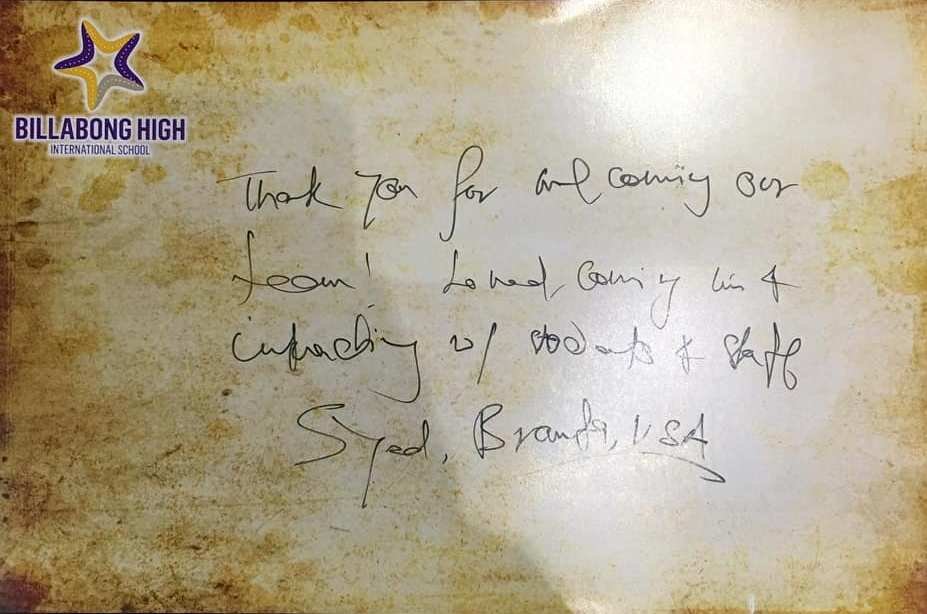 BILLABONG HIGH
INTERNATIONAL SCHOOL
Thank you for welcoming our
team! Loved coming in &
interacting w/ students & staff
Syed, USA